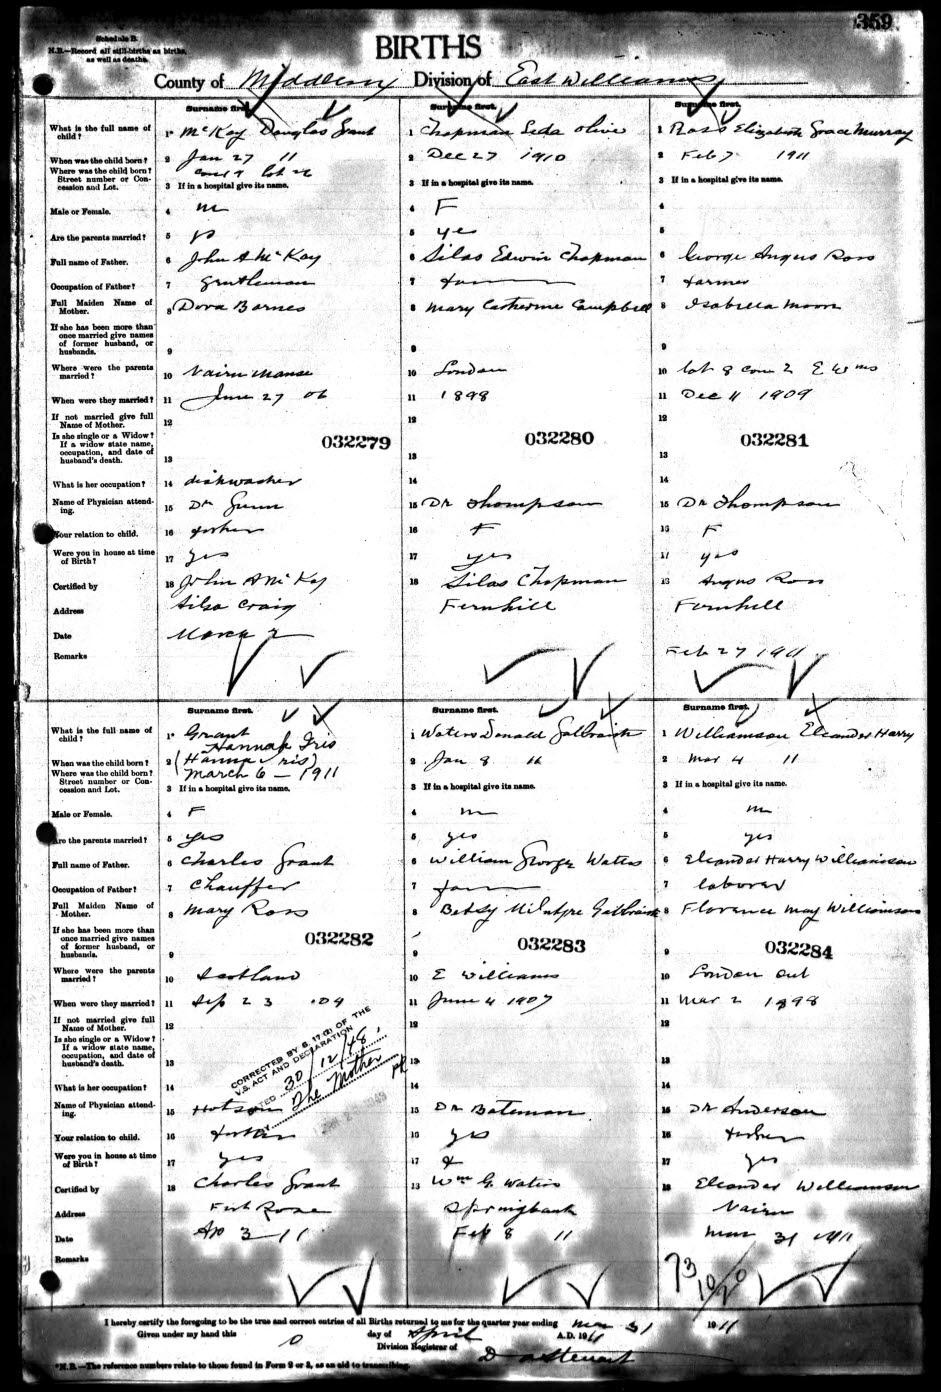 359
Schedule B.
N.B.—Record all still-births as births, as well as deaths.
BIRTHS
County of Middlesex Division of East Williams
Surname first. Surname first. Surname first.
What is the full name of child? 1 McKay Douglas Grant 1 Chapman Leda Olive 1 Ross Elizabeth Grace Murray
When was the child born? 2 Jan 27 11 2 Dec 27 1910 2 Feb 7 1911
Where was the child born? Street number or Concession and Lot. 3 If in a hospital give its name. 3 If in a hospital give its name. 3 If in a hospital give its name.
Male or Female. 4 m 4 F 4
Are the parents married? 5 5 yes 5
Full name of Father. 6 John A McKay 6 Silas Edwin Chapman 6 George Angus Ross
Occupation of Father? 7 Gentleman 7 7 Farmer
Full Maiden Name of Mother. 8 Dora Barnes 8 Mary Catherine Campbell 8 Isabella Moon
If she has been more than once married give names of former husband, or husbands. 9 9 9
Where were the parents married? 10 Nairn Manse 10 London 10 lot 8 con 2 E Wms
When were they married? 11 June 27 06 11 1898 11 Dec 11 1909
If not married give full Name of Mother. 12 12 12
Is she single or a Widow? If a widow state name, occupation, and date of husband's death. 13 13 13
032279 032280 032281
What is her occupation? 14 dishwasher 14 14
Name of Physician attending. 15 Dr Gunn 15 Dr Thompson 15 Dr Thompson
Your relation to child. 16 father 16 F 16 F
Were you in house at time of Birth? 17 yes 17 yes 17 yes
Certified by 18 John A McKay 18 Silas Chapman 18 Angus Ross
Address Ailsa Craig Fernhill Fernhill
Date March 2
Feb 27 1911
Remarks
Surname first. Surname first. Surname first.
What is the full name of child? 1 Graant Hannah Iris 1 Waters Donald Galbraith 1 Williamson Eleander Harry
(Hanna Iris)
When was the child born? 2 March 6 – 1911 2 Jan 8 11 2 Mar 4 11
Where was the child born? Street number or Concession and Lot. 3 If in a hospital give its name. 3 If in a hospital give its name. 3 If in a hospital give its name.
Male or Female. 4 F 4 m 4 m
Are the parents married? 5 yes 5 yes 5 yes
Full name of Father. 6 Charles Grant 6 William George Waters 6 Eleander Harry Williamson
Occupation of Father? 7 Chauffer 7 7 laborer
Full Maiden Name of Mother. 8 Mary Ross 8 Betsy McIntyre Galbraith 8 Florence May Williamson
If she has been more than once married give names of former husband, or husbands. 9 9 9
032282 032283 032284
Where were the parents married? 10 Scotland 10 E Williams 10 London Ont
When were they married? 11 Sep 23 .09 11 June 4 1907 11 Mar 2 1898
If not married give full Name of Mother. 12 12 12
Is she single or a Widow? If a widow state name, occupation, and date of husband's death. 13 13 13
CORRECTED BY S. 17 (3) OF THE
V.S. ACT AND DECLARATION
30/12/48,
The Mother
What is her occupation? 14 14 14
Name of Physician attending. 15 Hotson 15 Dr Bateman 15 Dr Anderson
Your relation to child. 16 father 16 yes 16 father
Were you in house at time of Birth? 17 yes 17 17 yes
Certified by 18 Charles Grant 18 Wm G. Waters 18 Eleander Williamson
Address Springbank Nairn
Date Ap 3 11 Feb 8 11 Mar 31 1911
Remarks
73
10/20
I hereby certify the foregoing to be the true and correct entries of all Births returned to me for the quarter year ending Mar 31 1911
Given under my hand this day of April A.D. 1911
Division Registrar of
D A Stewart
*N.B.—The reference numbers relate to those found in Form 2 or 3, as an aid to transcribing.